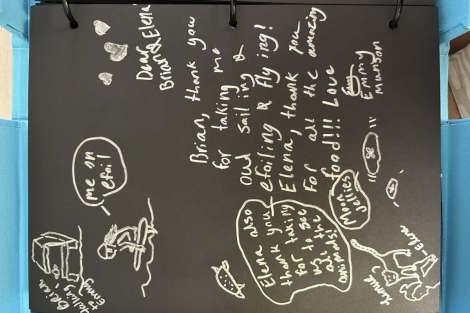 Dear
Brian & Elena
Brian, thank you
for taking me
out sailing &
efoiling & flying!
Elena, thank you
for all the amazing
food!!! Love
Emmy
Munson
me on
efoil
Elena also
thank you
for taking
to see
all the
animals!
Moon
Jellies
Brian
Emmy
Elena